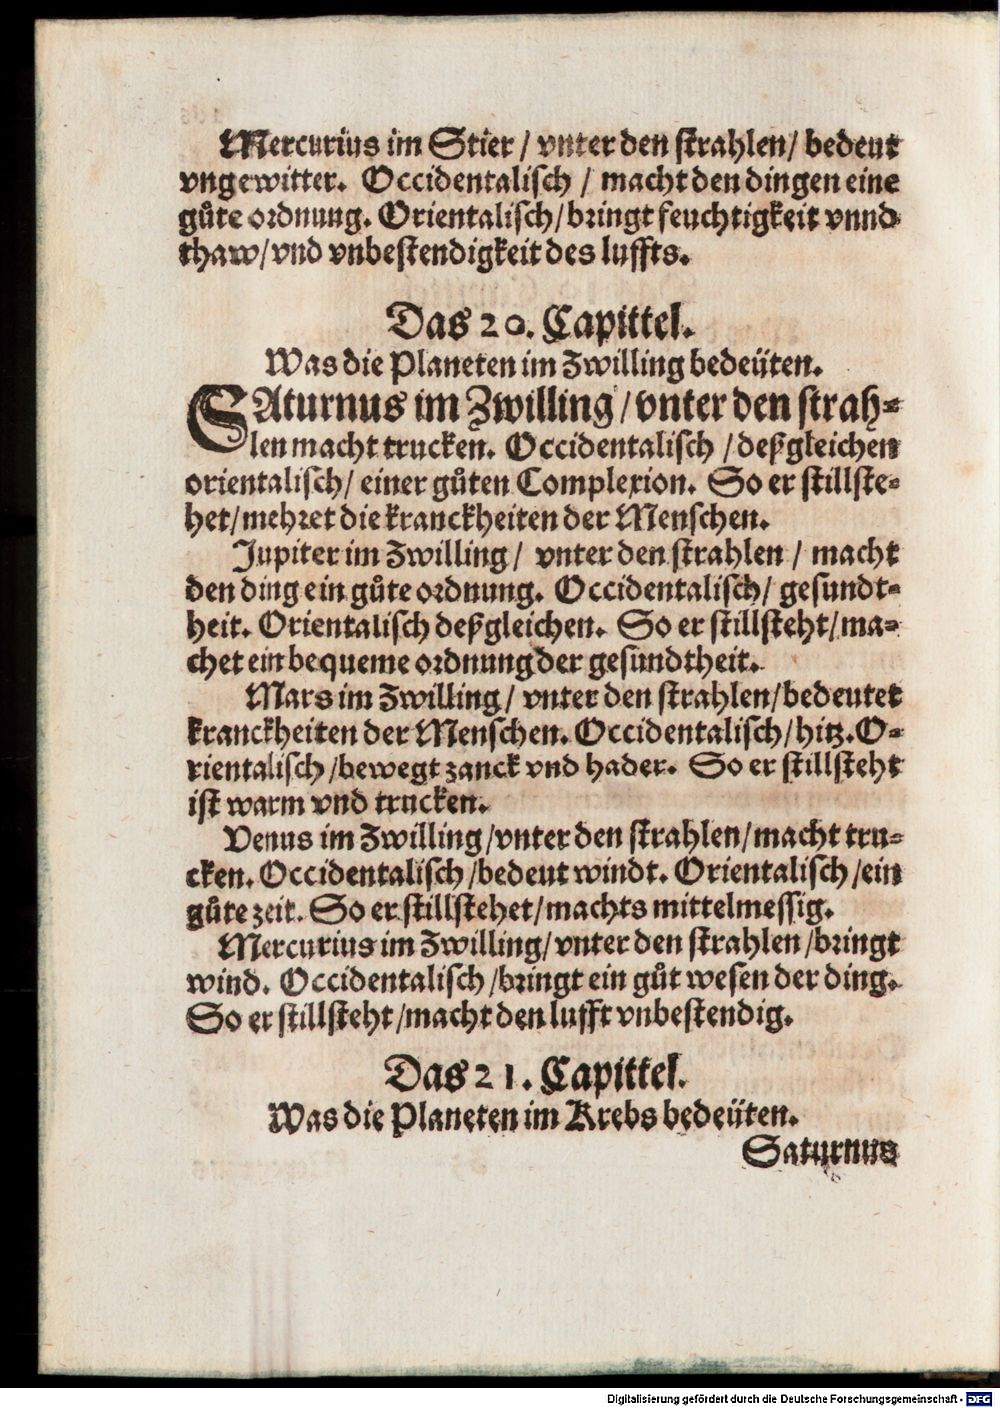 Mercurius im Stier / vnter den strahlen / bedeut
vngewitter. Occidentalisch / macht den dingen eine
gůte ordnung. Orientalisch / bringt feuchtigkeit vnnd
thaw / vnd vnbestendigkeit des luffts.
Das 20. Capittel.
Was die Planeten im Zwilling bedeüten.
SAturnus im Zwilling / vnter den strah⸗
len macht trucken. Occidentalisch / deßgleichen
orientalisch / einer gůten Complexion. So er stillste⸗
het / mehret die kranckheiten der Menschen.
Jupiter im Zwilling / vnter den strahlen / macht
den ding ein gůte ordnung. Occidentalisch / gesundt⸗
heit. Orientalisch deßgleichen. So er stillsteht / ma⸗
chet ein bequeme ordnung der gesundtheit.
Mars im Zwilling / vnter den strahlen / bedeutet
kranckheiten der Menschen. Occidentalisch / hitz. O⸗
rientalisch / bewegt zanck vnd hader. So er stillsteht
ist warm vnd trucken.
Venus im Zwilling / vnter den strahlen / macht tru⸗
cken. Occidentalisch / bedeut windt. Orientalisch / ein
gůte zeit. So er stillstehet / machts mittelmessig.
Mercurius im Zwilling / vnter den strahlen / bringt
wind. Occidentalisch / bringt ein gůt wesen der ding.
So er stillsteht / macht den lufft vnbestendig.
Das 21. Capittel.
Was die Planeten im Krebs bedeüten.
Saturnus
Digitalisierung gefördert durch die Deutsche Forschungsgemeinschaft - DFG